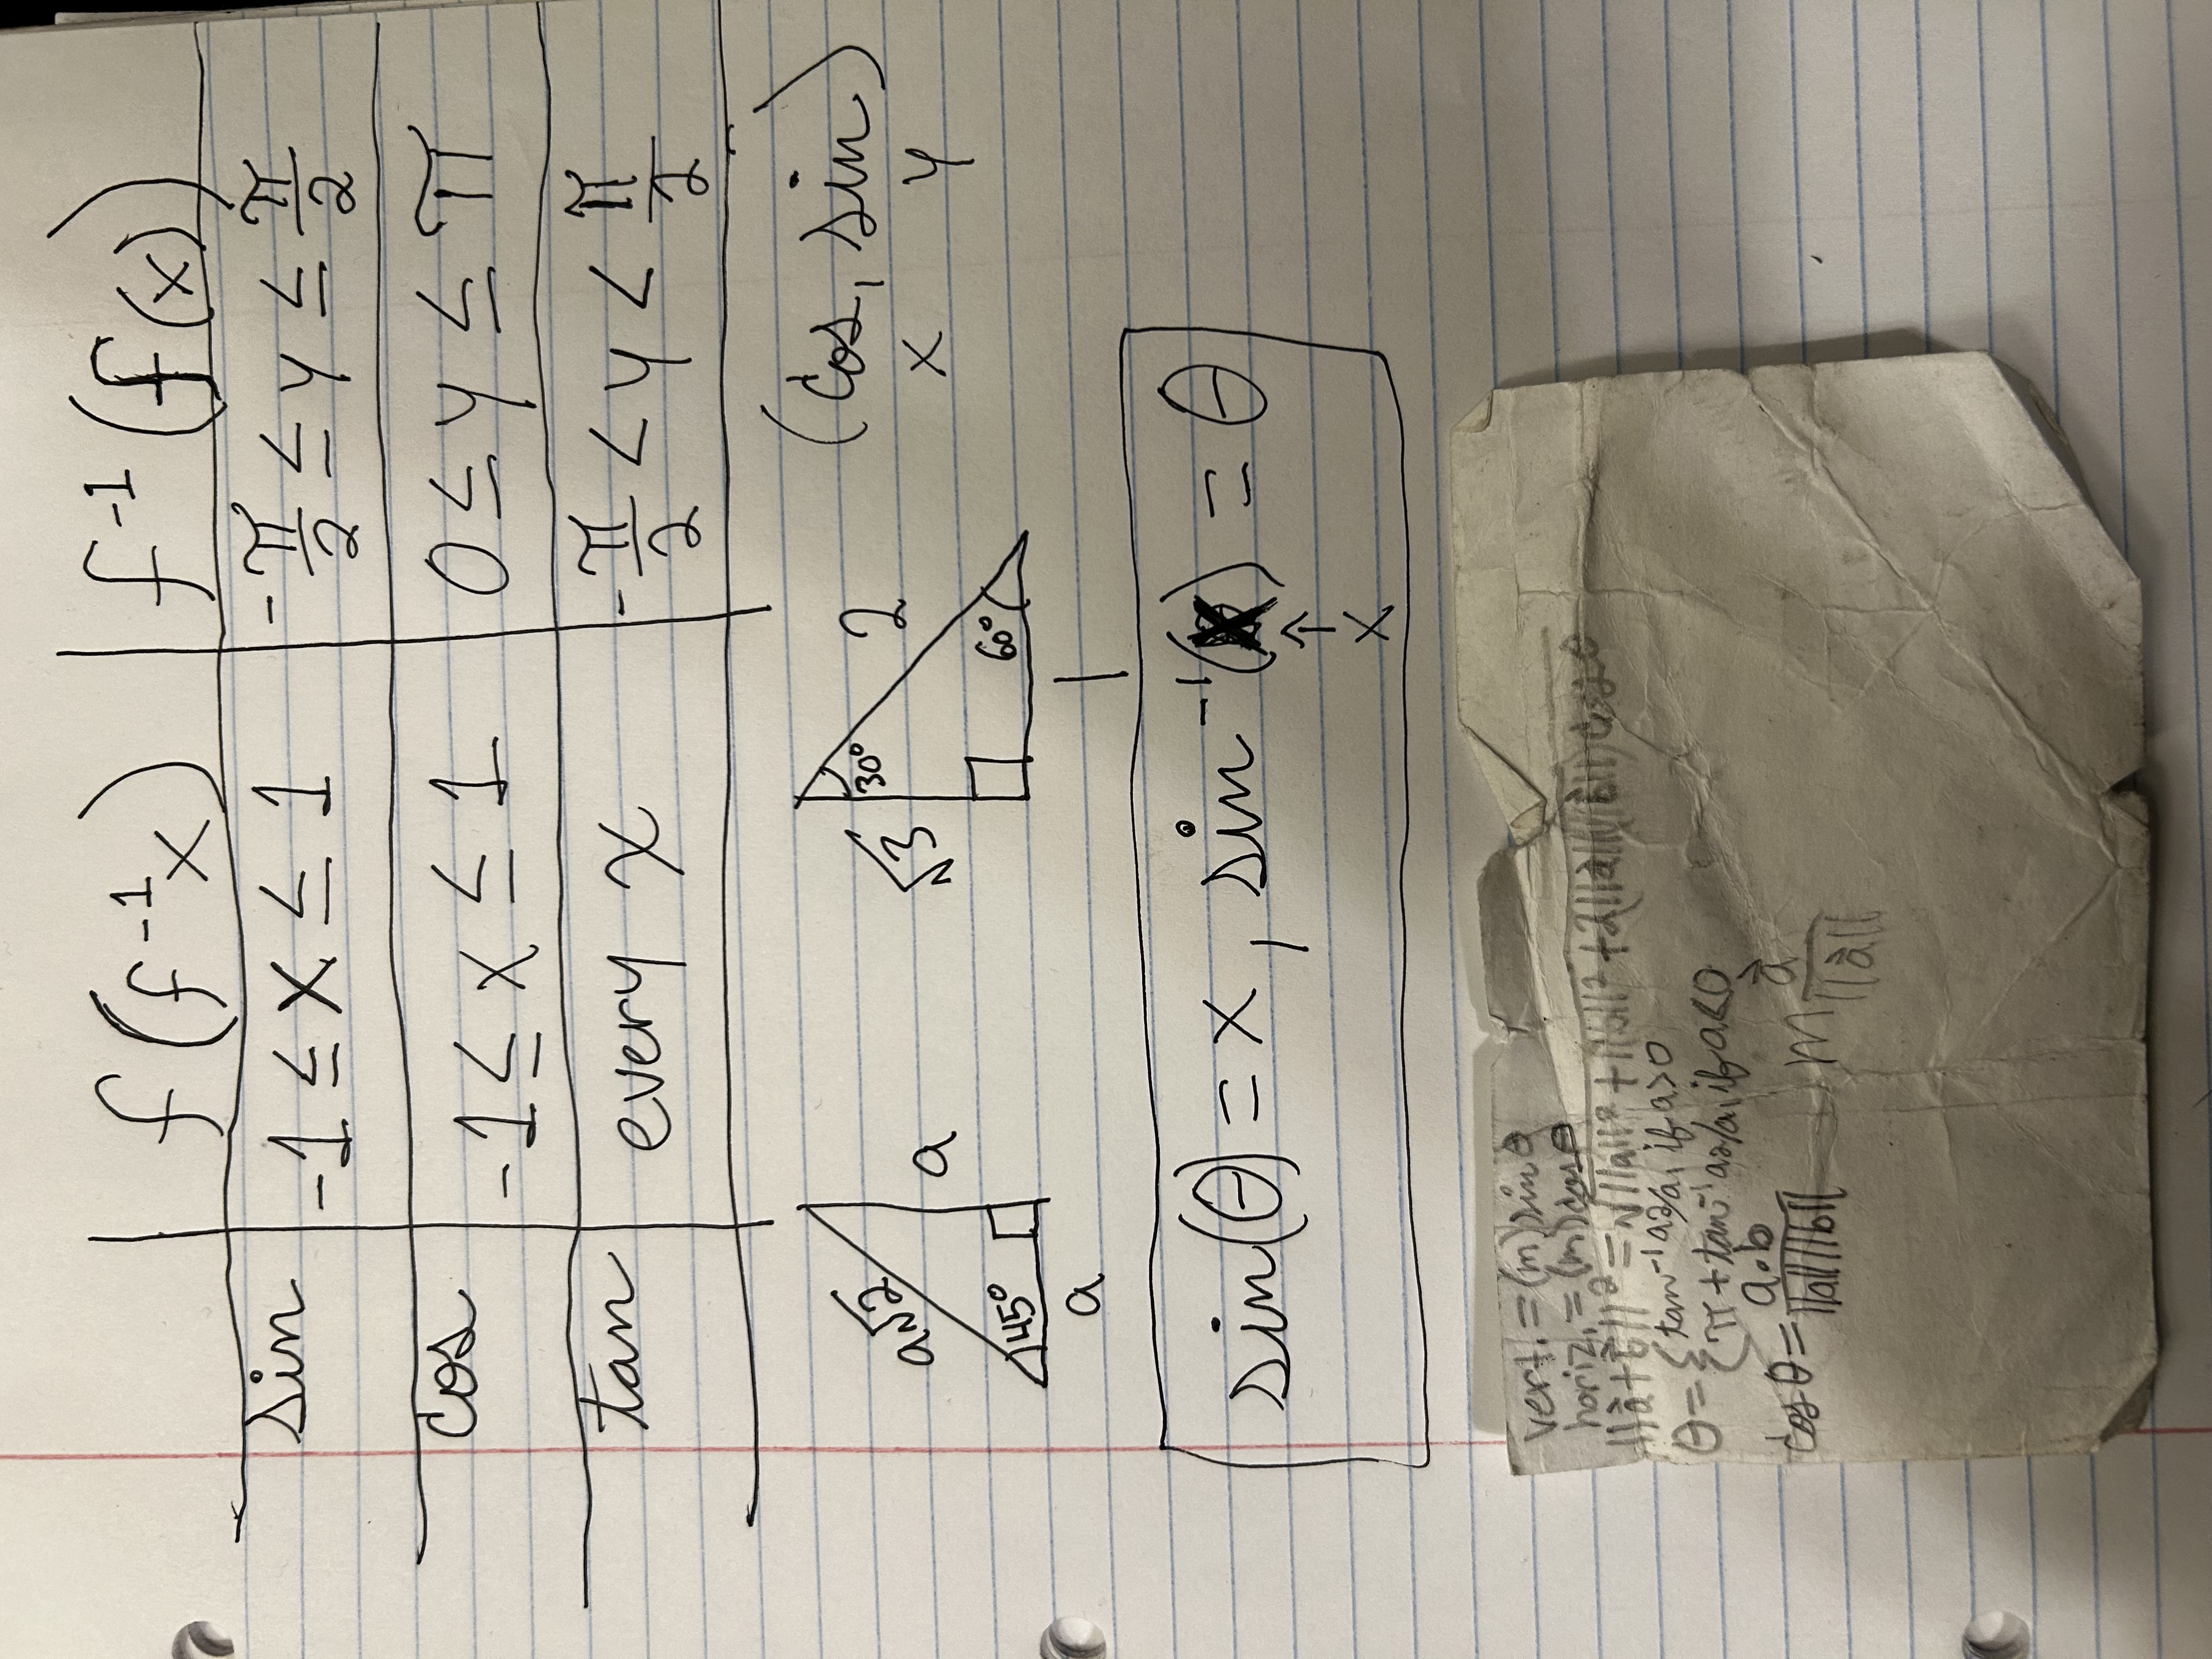 f(f⁻¹x) f⁻¹(f(x))
sin -1 ≤ x ≤ 1 -π/2 ≤ y ≤ π/2
cos -1 ≤ x ≤ 1 0 ≤ y ≤ π
tan every x -π/2 < y < π/2
a√2 a 45° a
√3 30° 2 60° 1
(cos, sin)
x y
sin(θ) = x, sin⁻¹(x) = θ
↑
x
vert. = (m)sinθ
horiz. = (m)cosθ
||a⃗+b⃗||² = √||a||² + ||b||² + 2||a⃗||(||b⃗||)cosθ
θ = { tan⁻¹ a₂/a₁ if a>0
π + tan⁻¹ a₂/a₁ if a<0
cos θ = a·b/||a||||b|| m a⃗/||a⃗||